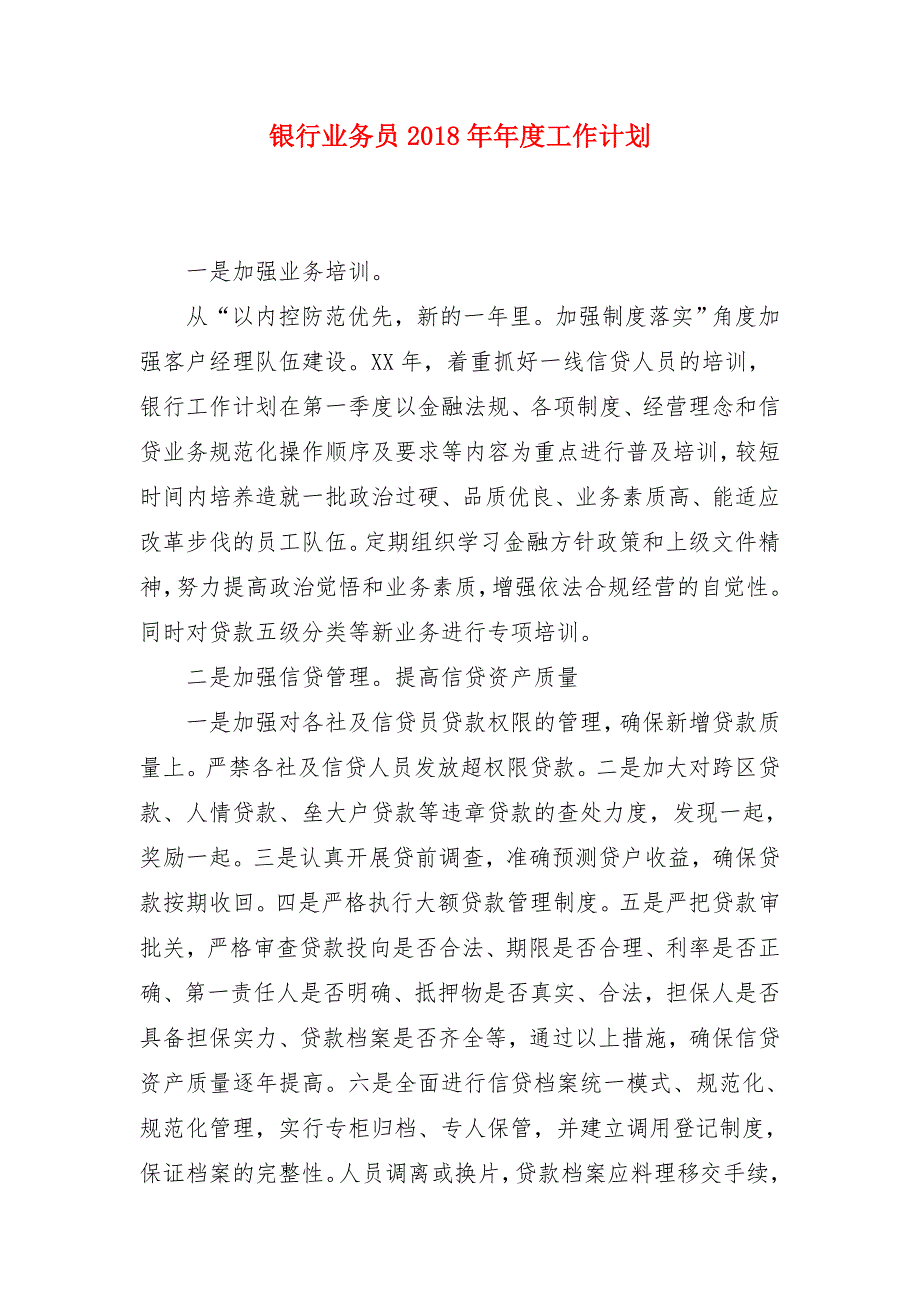 银行业务员2018年年度工作计划
一是加强业务培训。
从“以内控防范优先，新的一年里。加强制度落实”角度加
强客户经理队伍建设。XX年，着重抓好一线信贷人员的培训，
银行工作计划在第一季度以金融法规、各项制度、经营理念和信
贷业务规范化操作顺序及要求等内容为重点进行普及培训，较短
时间内培养造就一批政治过硬、品质优良、业务素质高、能适应
改革步伐的员工队伍。定期组织学习金融方针政策和上级文件精
神，努力提高政治觉悟和业务素质，增强依法合规经营的自觉性。
同时对贷款五级分类等新业务进行专项培训。
二是加强信贷管理。提高信贷资产质量
一是加强对各社及信贷员贷款权限的管理，确保新增贷款质
量上。严禁各社及信贷人员发放超权限贷款。二是加大对跨区贷
款、人情贷款、垒大户贷款等违章贷款的查处力度，发现一起，
奖励一起。三是认真开展贷前调查，准确预测贷户收益，确保贷
款按期收回。四是严格执行大额贷款管理制度。五是严把贷款审
批关，严格审查贷款投向是否合法、期限是否合理、利率是否正
确、第一责任人是否明确、抵押物是否真实、合法，担保人是否
具备担保实力、贷款档案是否齐全等，通过以上措施，确保信贷
资产质量逐年提高。六是全面进行信贷档案统一模式、规范化、
规范化管理，实行专柜归档、专人保管，并建立调用登记制度，
保证档案的完整性。人员调离或换片，贷款档案应料理移交手续，